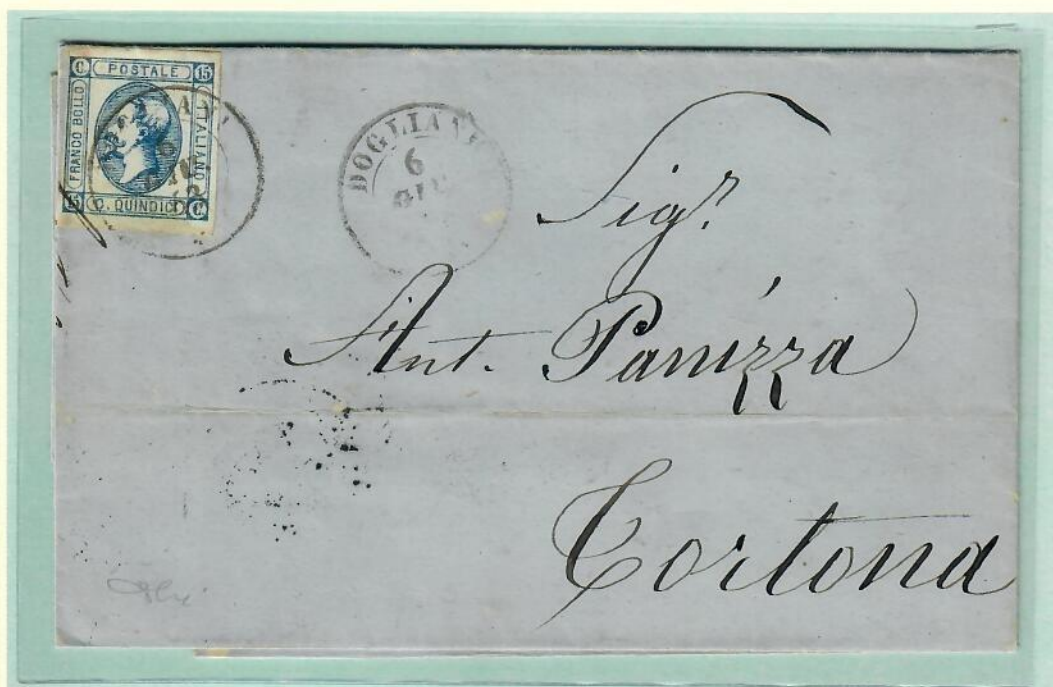 C POSTALE 15
FRANCO BOLLO
ITALIANO
15 C. QUINDICI C
DOGLIANI
6
GIU
Sigr.
Ant. Panizza
Tortona